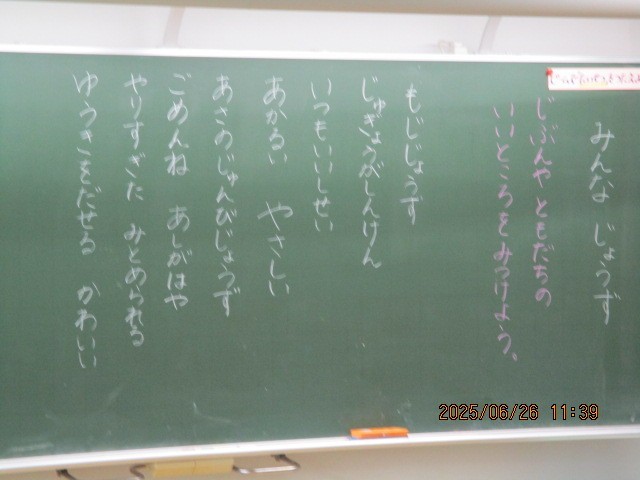 みんな じょうず
じぶんや ともだちの
いいところを みつけよう。
もじじょうず
じゅぎょうがしんけん
いつもいいしせい
あかるい やさしい
あさのじゅんびじょうず
ごめんね あしがはや
やりすぎた みとめられる
ゆうきをだせる かわいい
2025/06/26 11:39